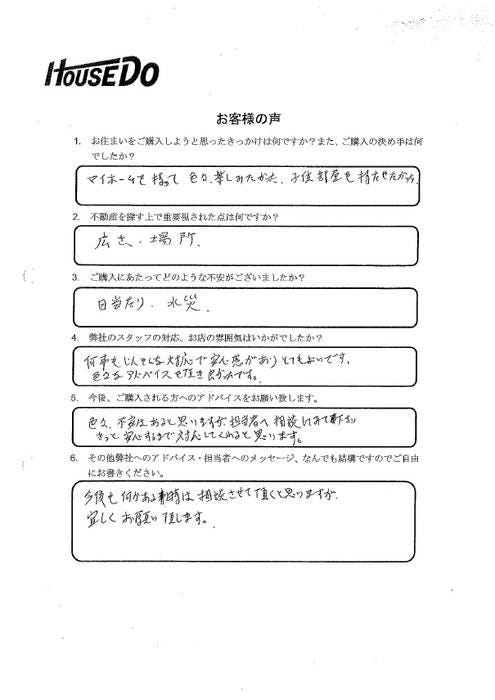 HOUSEDO
お客様の声
1. お住まいをご購入しようと思ったきっかけは何ですか?また、ご購入の決め手は何
でしたか?
マイホームを持って 色々、楽しみたかった、子供部屋を持たせたかった
2. 不動産を探す上で重要視された点は何ですか?
広さ、場所、
3. ご購入にあたってどのような不安がございましたか?
日当たり、水災
4. 弊社のスタッフの対応、お店の雰囲気はいかがでしたか?
何事もしんせつな対応で安心感がありとてもよいです。
色々なアドバイスを頂き良かったです。
5. 今後、ご購入される方へのアドバイスをお願い致します。
色々、不安はあると思いますが担当者へ相談してみて下さい
きっと安心するまで対応してくれると思います。
6. その他弊社へのアドバイス・担当者へのメッセージ、なんでも結構ですのでご自由
にお書きください。
今後も何かある時は相談させて頂くと思いますが
宜しくお願い致します。